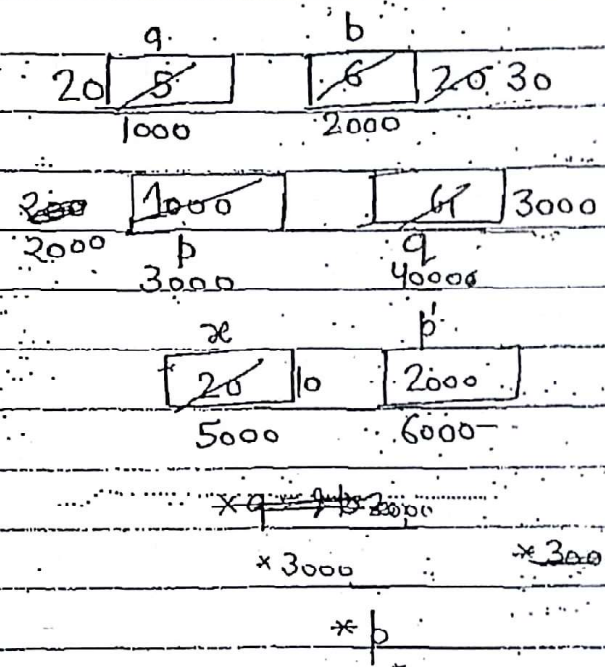 a b
20 5 6 20 30
1000 2000
1000 G 3000
2000 p q
3000 40000
x p'
20 10 2000
5000 6000
* 3000 * 300
* p